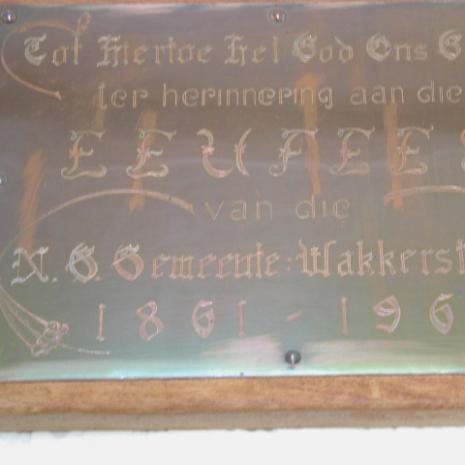 Tot Hiertoe Het God Ons G
ter herinnering aan die
EEUFEES
van die
N. G. Gemeente: Wakkerst
1861 - 196